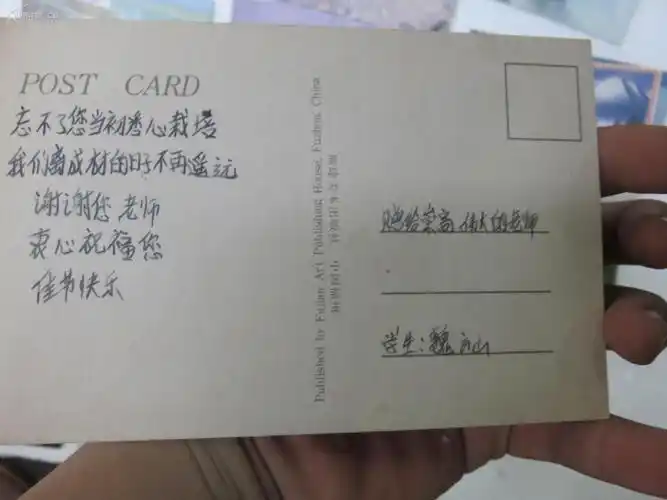 POST CARD
忘不了您当初悉心栽培
我们离成材的日子不再遥远
谢谢您 老师
衷心祝福您
佳节快乐
Published by Fujian Art Publishing House, Fuzhou, China
赠给崇高 伟大的老师
学生:魏